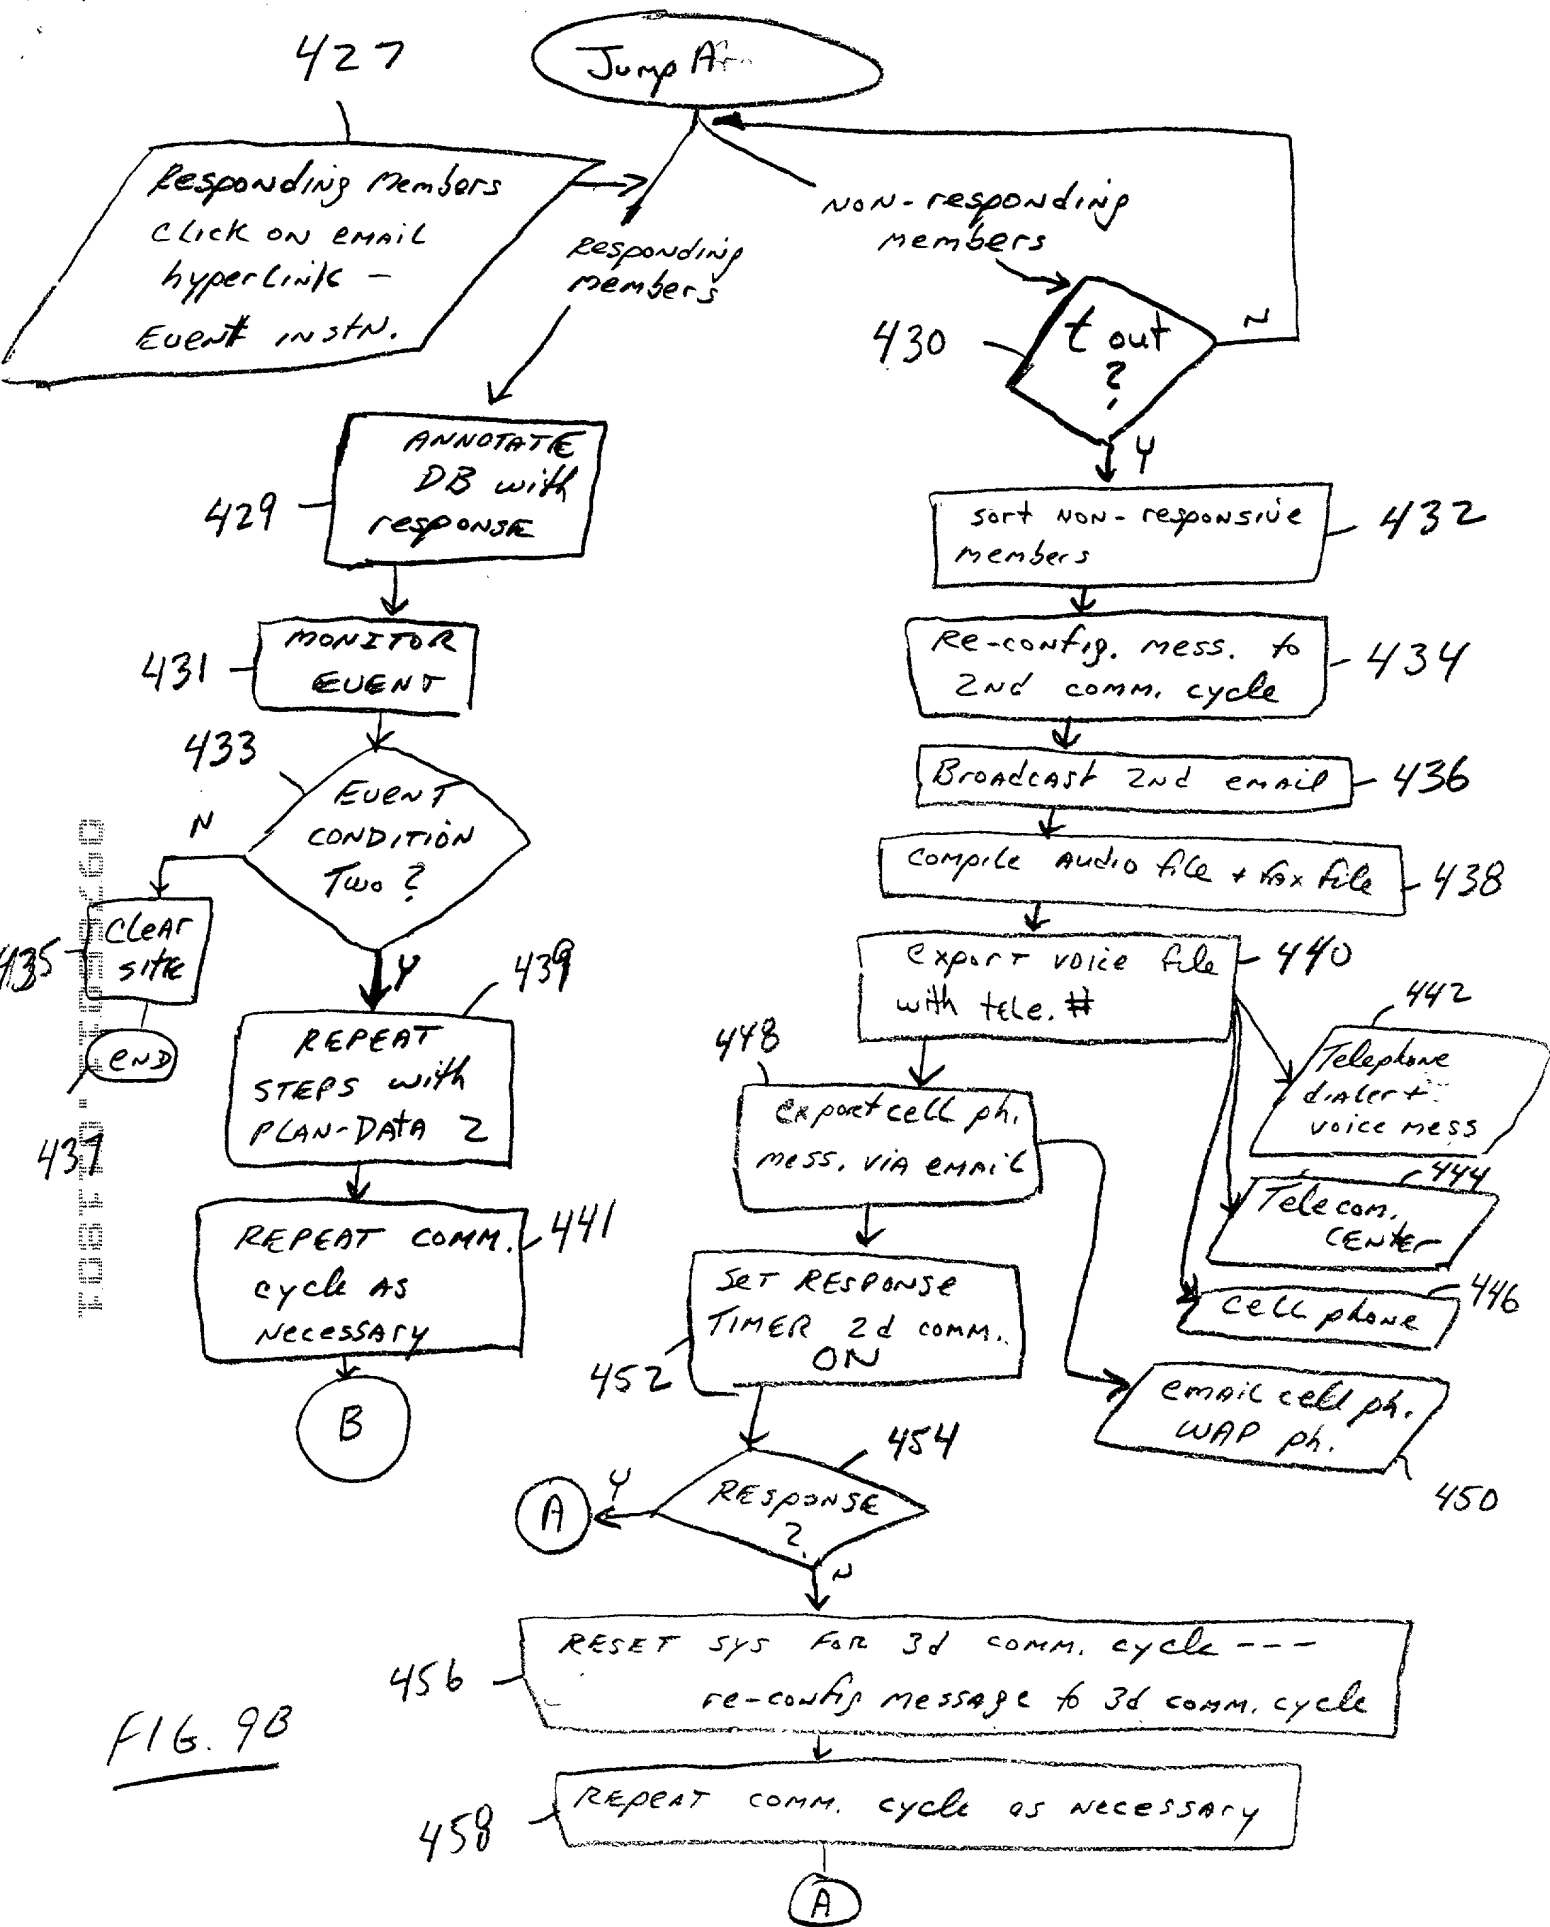 427
Jump A
Responding Members
Click on email
hyperlink -
Event instn.
Responding
members
Non-responding
members
430
t out
?
N
Y
429
ANNOTATE
DB with
response
sort non-responsive
members
432
431
MONITOR
EVENT
Re-config. mess. to
2nd comm. cycle
434
433
EVENT
CONDITION
Two ?
N
Y
Broadcast 2nd email
436
compile audio file + fax file
438
435
clear
site
END
437
439
REPEAT
STEPS with
PLAN-DATA 2
export voice file
with tele. #
440
442
Telephone
dialer +
voice mess
448
export cell ph.
mess. via email
444
Telecom.
Center
441
REPEAT COMM.
cycle AS
Necessary
B
446
cell phone
Set RESPONSE
TIMER 2d comm.
ON
452
email cell ph.
WAP ph.
450
454
RESPONSE
?
Y
A
N
456
RESET sys FOR 3d comm. cycle ---
re-config message to 3d comm. cycle
FIG. 9B
458
REPEAT comm. cycle as necessary
A